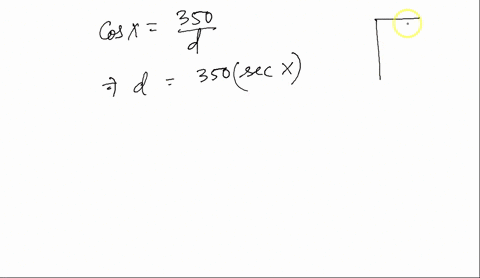 cos x = 350/d
⇒ d = 350(sec x)